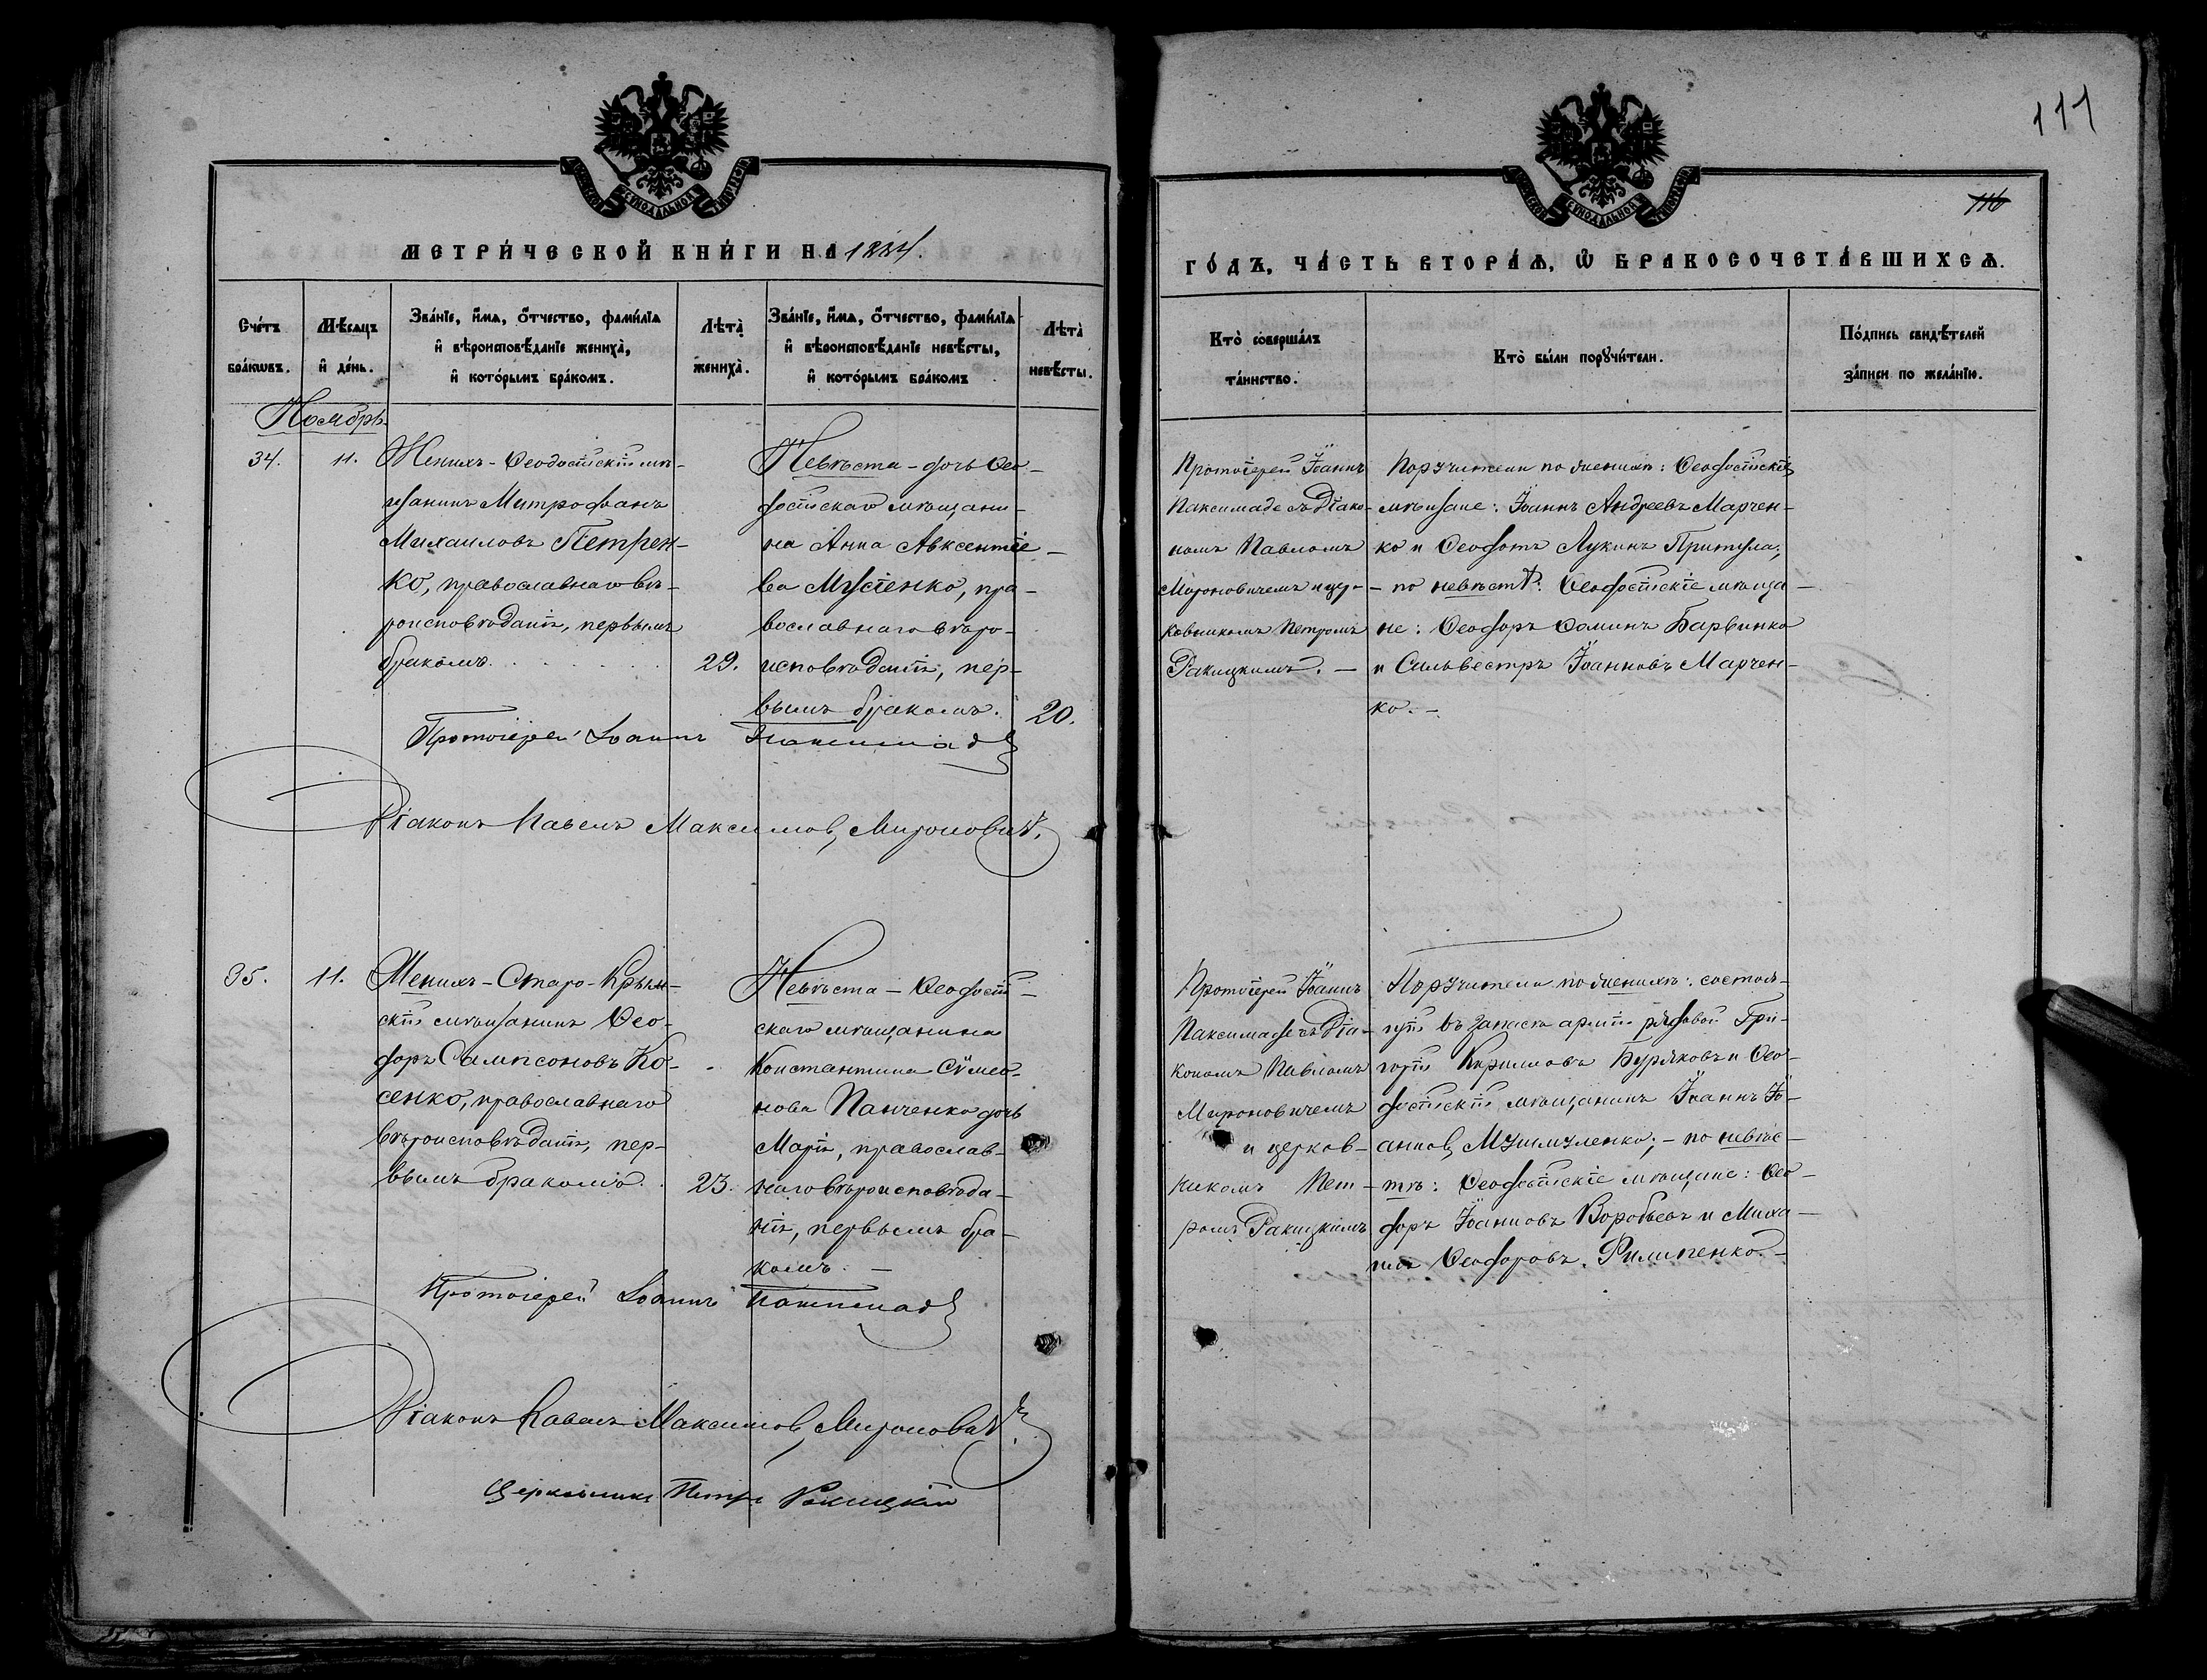 МЕТРИ́ЧЕСКОЙ КНИ́ГИ НА 1884.
Сче́тъ бра́кѡвъ.
Мѣ́сяцъ и҆ де́нь.
Зва́нїе, и҆́мѧ, ѻ҆́тчество, фами́лїѧ
и҆ вѣроисповѣ́данїе жениха̀,
и҆ кото́рымъ бра́комъ.
Лѣта̀ жениха̀.
Зва́нїе, и҆́мѧ, ѻ҆́тчество, фами́лїѧ
и҆ вѣроисповѣ́данїе невѣ́сты,
и҆ кото́рымъ бра́комъ
Лѣта̀ невѣ́сты.
Ноябрь.
34.
11.
Женихъ - Ѳеодосійскій мѣ-
щанинъ Митрофанъ
Михаиловъ Петрен-
ко, православнаго вѣ-
роисповѣданія, первымъ
бракомъ.
29.
Невѣста - дочь Ѳео-
досійскаго мѣщани-
на Анна Авксентіе-
ва Мусіенко, пра-
вославнаго вѣро-
исповѣданія, пер-
вымъ бракомъ.
20.
Протоіерей Іоаннъ Паксимаде
Діаконъ Павелъ Максимов, Мироновичъ.
35.
11.
Женихъ - Старо-Крым-
скій мѣщанинъ Ѳео-
доръ Сампсоновъ Ко-
сенко, православнаго
вѣроисповѣданія, пер-
вымъ бракомъ.
23.
Невѣста - Ѳеодосій-
скаго мѣщанина
Константина Сѵмео-
нова Панченко дочь
Марія, православ-
наго вѣроисповѣда-
нія, первымъ бра-
комъ. —
Протоіерей Іоаннъ Паксимаде
Діаконъ Павелъ Максимов, Мироновичъ.
Церковникъ Петръ Ракицкій
111
116
ГО́ДЪ, ЧА́СТЬ ВТОРА́Ѧ, Ѡ҆ БРАКОСОЧЕТА́ВШИХСѦ.
Кто̀ соверша́лъ
та́инство.
Кто̀ бы́ли порꙋчи́тели.
По́дпись свидѣ́телей
за́писи по жела́нїю.
Протоіерей Іоаннъ
Паксимаде съ Діако-
номъ Павломъ
Мироновичемъ и цер-
ковникомъ Петромъ
Ракицкимъ. —
Поручители по женихѣ: Ѳеодосійскіе
мѣщане: Іоаннъ Андреевъ Марчен-
ко и Ѳеодотъ Лукинъ Притула;
- по невѣстѣ: Ѳеодосійскіе мѣща-
не: Ѳеодоръ Ѳоминъ Барвинко
и Сильвестръ Іоанновъ Марчен-
ко. —
Протоіерей Іоаннъ
Паксимаде съ Діа-
кономъ Павломъ
Мироновичемъ
и церков-
никомъ Пет-
ромъ Ракицкимъ
Поручители по женихѣ: состоя-
щій въ запасѣ арміи рядовой Гри-
горій Кирилловъ Буряковъ и Ѳео-
досійскій мѣщанинъ Іоаннъ Іо-
аннов, Мушмуленко; - по невѣс-
тѣ: Ѳеодосійскіе мѣщане: Ѳео-
доръ Іоанновъ Воробьевъ и Миха-
илъ Ѳеодоровъ Филипенко. —